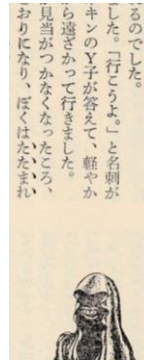 るのでした。
ました。「行こうよ。」と名刺が
キンのY子が答えて、軽やか
ら遠ざかって行きました。
見当がつかなくなったころ、
おりになり、ぼくはたたまれ